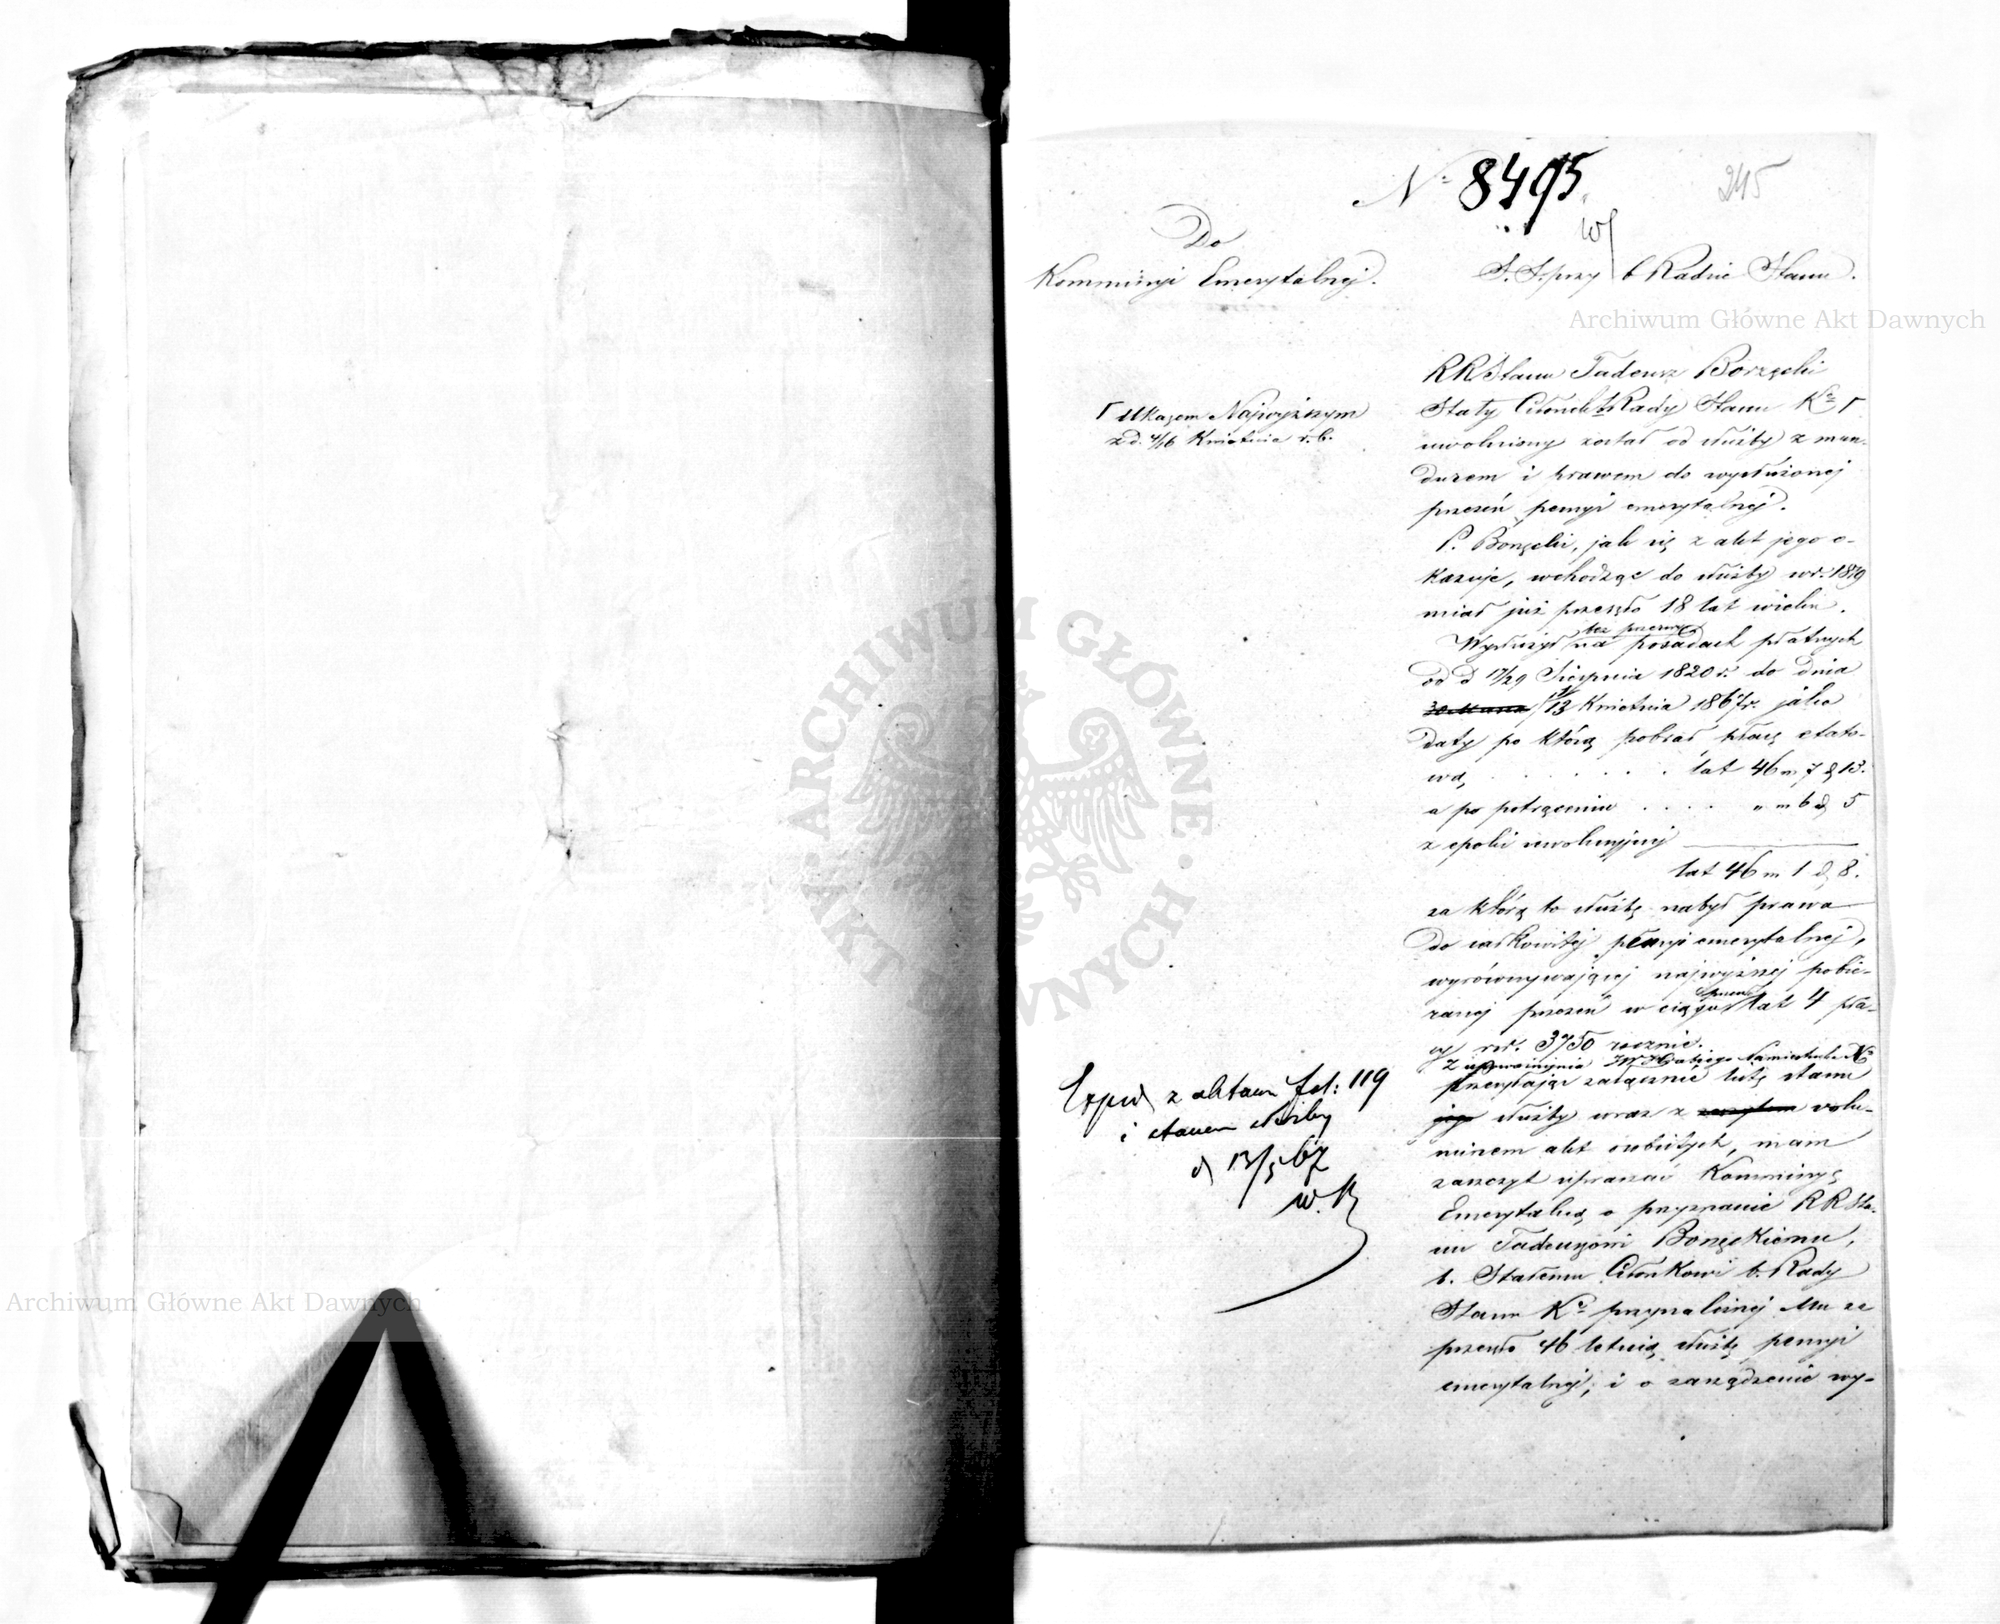 № 8495.
245
Do
Kommissyi Emerytalnej.
S. S. przy b. Radzie Stanu.
w/
Archiwum Główne Akt Dawnych
RRStanu Tadeusz Borzęcki
Stały Członek b. Rady Stanu Kr. Γ
Γ Ukazem Najwyższym
z d. 4/16 Kwietnia r. b.
uwolniony został od służby z mun-
durem i prawem do wysłużonej
przezeń pensyi emerytalnej.
P. Borzęcki, jak się z akt jego o-
kazuje, wchodząc do służby w r. 1819
miał już przeszło 18 lat wieku.
Wysłużył bez przerwy na posadach płatnych
od d 17/29 Sierpnia 1820 r. do dnia
30 Marca 1/13 Kwietnia 1867 r. jako
daty po którą pobrał płacę etato-
wą, . . . . . . . lat 46 m 7 d 13.
a po potrąceniu . . . . „ m 6 d 5
z epoki rewolucyjnej
lat 46 m 1 d 8.
za którą to służbę nabył prawa
do całkowitej pensyi emerytalnej,
wyrównywającej najwyższej pobie-
ranej przezeń w ciągu lat 4 pła-
cy rsr. 3750 rocznie.
Z upoważnienia JW Hrabiego Namiestnika
przesyłając załącznie listę stanu
jego służby wraz z zeszytem volu-
minem akt osobistych, mam
zaszczyt upraszać Kommissyę
Emerytalną o przyznanie RRSta-
nu Tadeuszowi Borzęckiemu,
b. Stałemu Członkowi b. Rady
Stanu Kr. przynależnej Mu za
przeszło 46 letnią służbę pensyi
emerytalnej, i o zarządzenie wy-
Exped z aktami fol: 119
i stanem służby
d 13/5 67
w. R
Archiwum Główne Akt Dawnych
ARCHIWUM GŁÓWNE AKT DAWNYCH